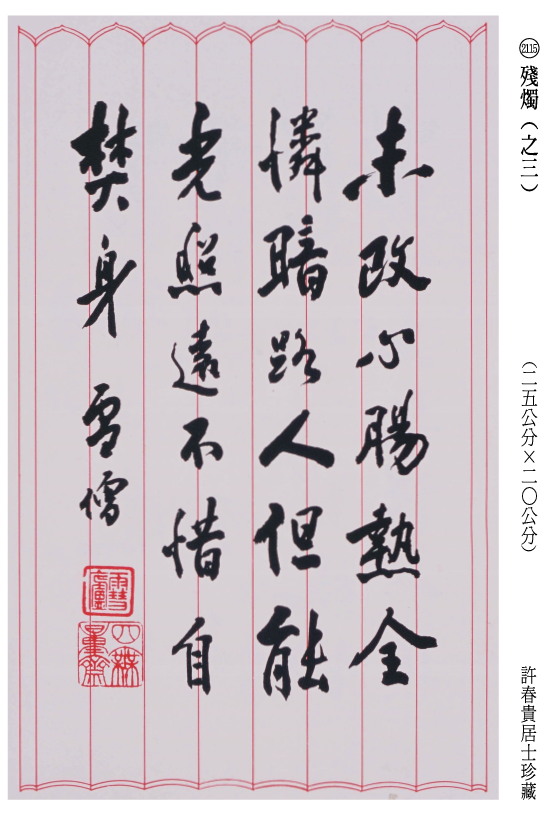 2115 殘燭（之三）
（二五公分×二〇公分）
許春貴居士珍藏
未改心腸熱全
憐暗路人但能
光照遠不惜自
焚身 雪僧